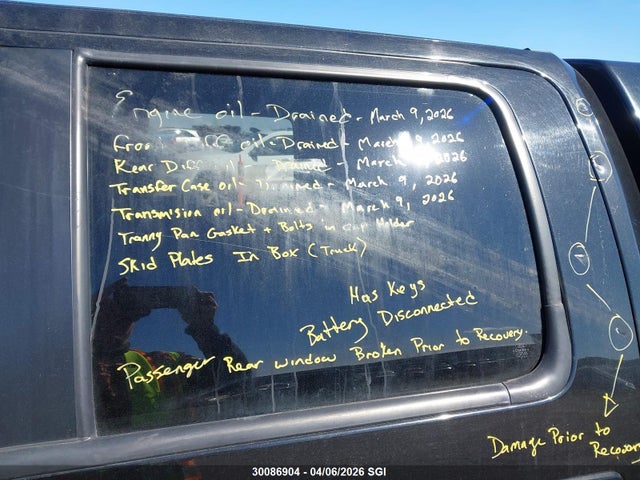 Engine oil - Drained - March 9, 2026
Front Diff oil - Drained - March 9, 2026
Rear Diff oil - Drained - March 9, 2026
Transfer Case oil - Drained - March 9, 2026
Transmision oil - Drained - March 9, 2026
Tranny Pan Gasket + Bolts in Cup Holder
Skid Plates In Box (Truck)
Has Keys
Battery Disconnected
Passenger Rear window Broken Prior to Recovery.
Damage Prior to
Recovery
30086904 - 04/06/2026 SGI